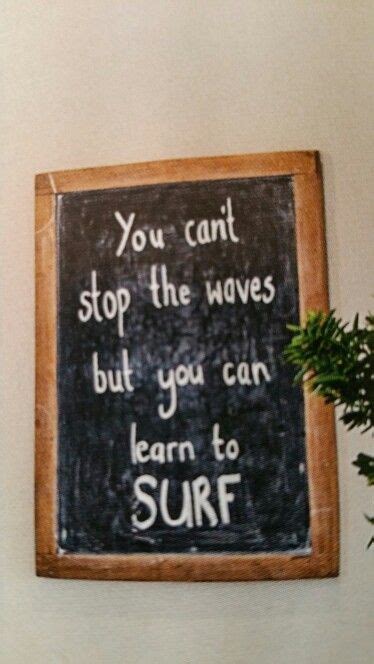 You can't
stop the waves
but you can
learn to
SURF